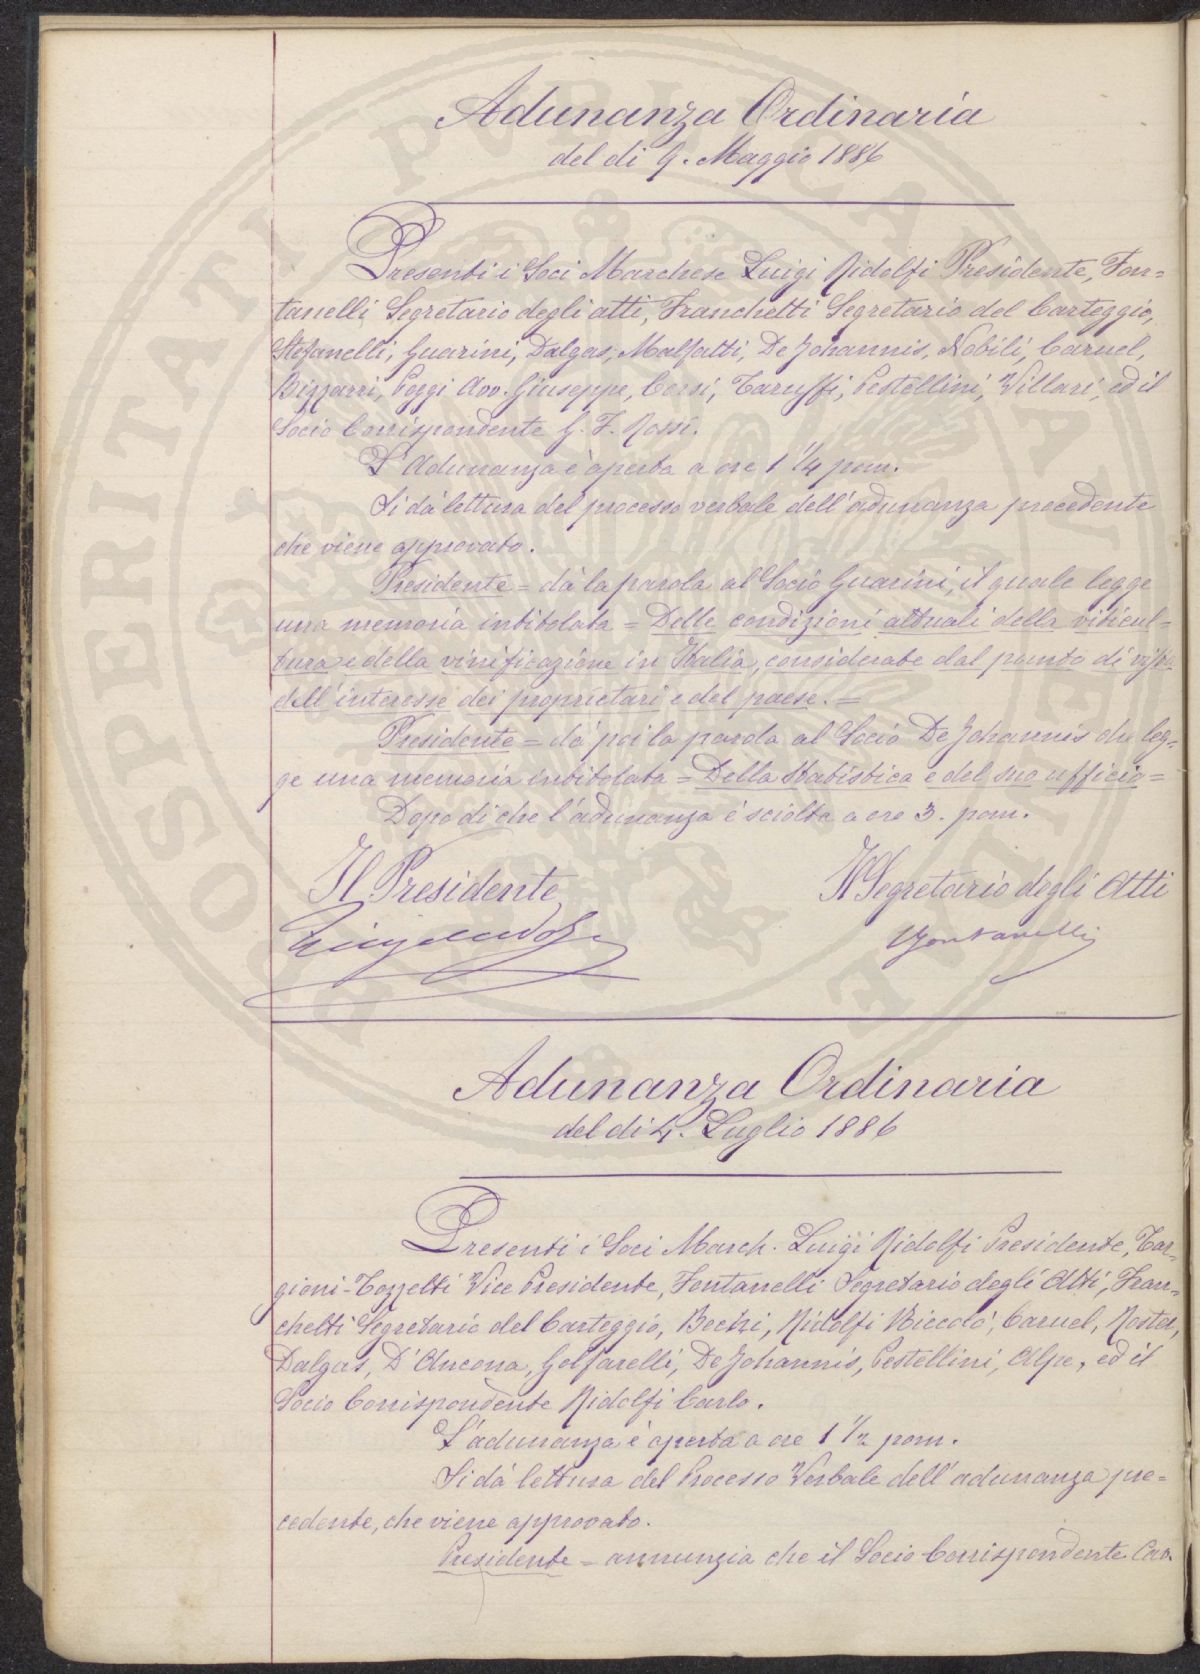 Adunanza Ordinaria
del di 9. Maggio 1886
Presenti i Soci Marchese Luigi Ridolfi Presidente, Fon=
tanelli Segretario degli atti, Franchetti Segretario del Carteggio,
Stefanelli, Guarini, Dalgas, Malfatti, De Johannis, Nobili, Caruel,
Bizzarri, Poggi Avv. Giuseppe, Corsi, Taruffi, Pestellini, Villari, ed il
Socio Corrispondente G. F. Rossi.
L'Adunanza è aperta a ore 1 1/4 pom.
Si dà lettura del processo verbale dell'adunanza precedente
che viene approvato.
Presidente = dà la parola al Socio Guarini, il quale legge
una memoria intitolata = Delle condizioni attuali della viticul=
tura e della vinificazione in Italia, considerate dal punto di vista
dell'interesse dei proprietari e del paese. =
Presidente = dà poi la parola al Socio De Johannis che leg=
ge una memoria intitolata = Della Statistica e del suo ufficio =
Dopo di che l'adunanza è sciolta a ore 3. pom.
Il Presidente
Il Segretario degli Atti
Luigi Ridolfi
Fontanelli
Adunanza Ordinaria
del di 4. Luglio 1886
Presenti i Soci March. Luigi Ridolfi Presidente, Tar=
gioni-Tozzetti Vice Presidente, Fontanelli Segretario degli Atti, Fran=
chetti Segretario del Carteggio, Bechi, Ridolfi Niccolò, Caruel, Roster,
Dalgas, D'Ancona, Golfarelli, De Johannis, Pestellini, Alpe, ed il
Socio Corrispondente Ridolfi Carlo.
L'adunanza è aperta a ore 1 1/2 pom.
Si dà lettura del Processo Verbale dell'adunanza pre=
cedente, che viene approvato.
Presidente = annunzia che il Socio Corrispondente Cav.